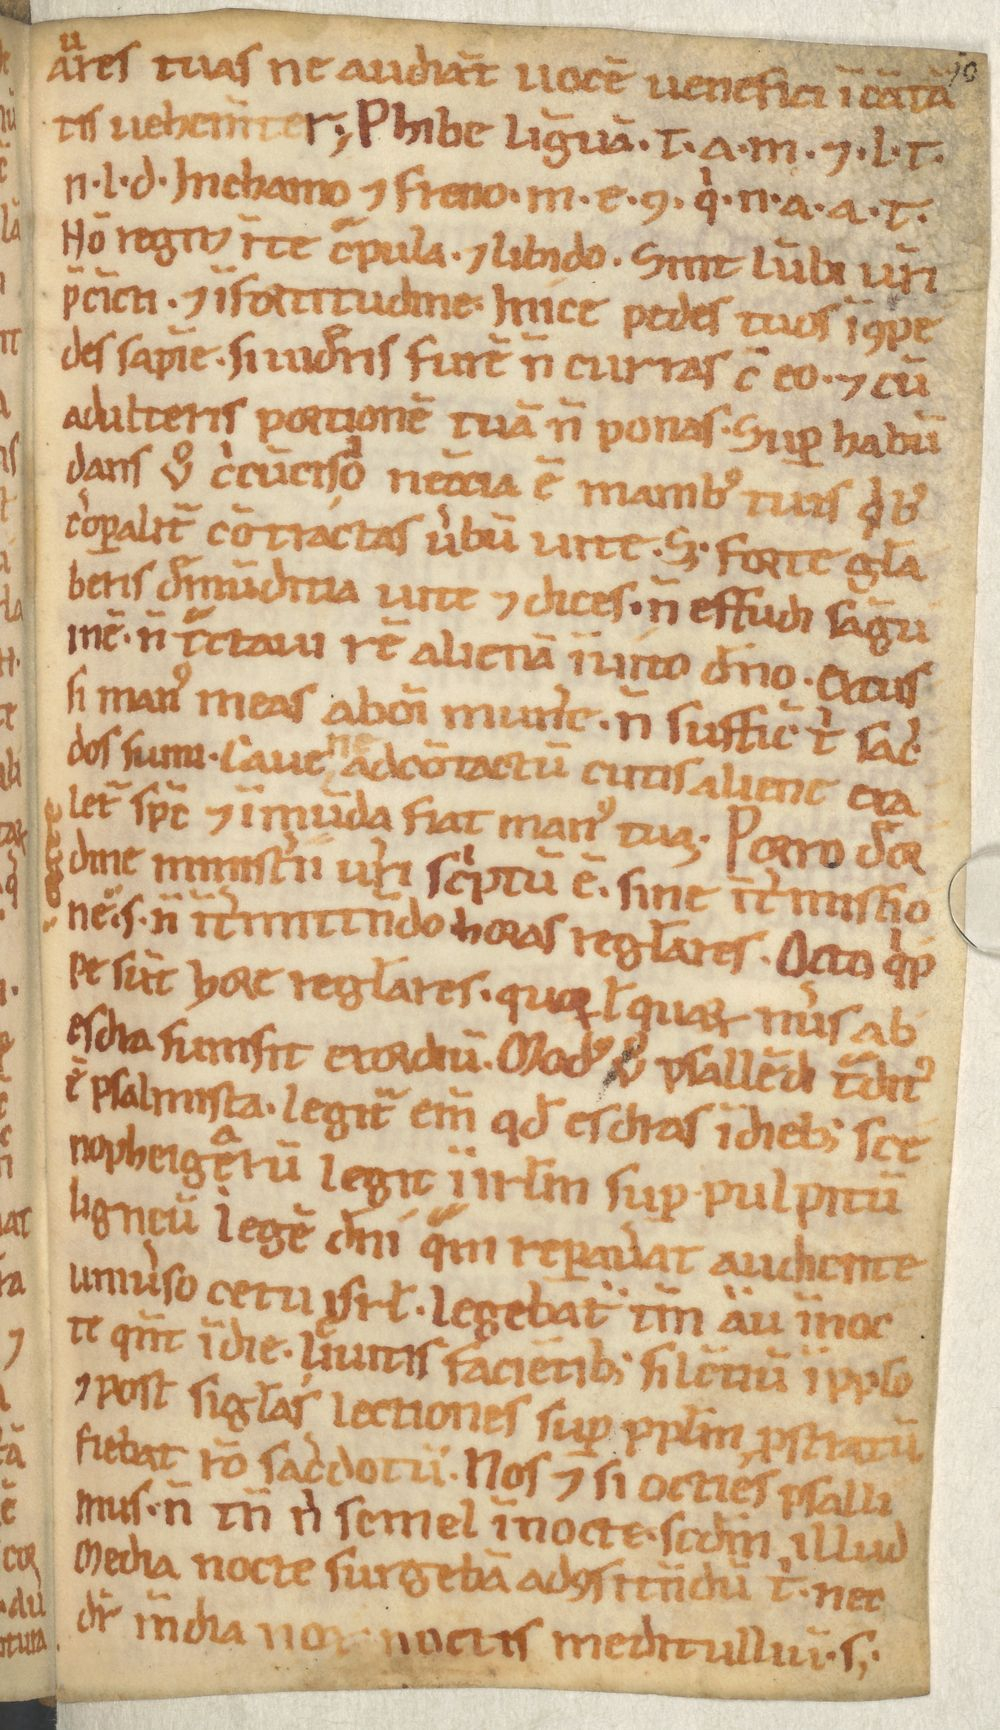 aures tuas ne audiāt uocē uenefici īcātā
tis uehem̄ter; Phibe līguā · t · a · m · ⁊ · l · t ·
n · l · d · In chamo ⁊ freno · m · e · ꝯ · q̓ · n · a · a · t ·
Hō regit r̄te c̄pula · ⁊ libido · Sint lūbi ur̄i
p̄cīcti · ⁊ ī fortitudine · Inice pedes tuos ī ꝯpe
des sapīe · si uid̓ris furē n̄ curras c̄ eo · ⁊ cū
adulteris portionē tuā n̄ ponas · Suꝑ habū
dans ū c̓cūcisio neccīa ē manibꝰ tuis q̓bꝰ
c̓oꝑalit̄ cōtractas u̓bū uite · S; forte gl̄a
beris d̓ mūditia uite ⁊ dices · n̄ effudi sāgui
nē · n̄ t̄ctaui rē alienā īuito dn̄o · excus
si manꝰ meas ab om̄i mun̓e · n̄ suffic̄ t̓ sac̓
dos sum̄i · Caue ne ad cōtactū cutis aliene exa
let̄ spc̄ ⁊ īmūda fiat manꝰ tua · Porro d̓ or
dine minist̓ii ur̄i sc̓ptū ē · sine īt̓missio
nē · s · n̄ īt̓mittn̄do horas regl̄ares · Octo q̓p
pe sūt hore regl̄ares · quoꝝ l̄ quaꝝ nūs ab
esdra sumsit exordiū · Modꝰ ū psallēdi t̄ditꝰ
ē psalmista · legit̄ em̄ qd̄ esdras ī diebꝫ sce
nophegiarū legit ī irl̄m suꝑ pulpitū
ligneū legē dn̄i q̄m repauāt audiente
uniu̓so cetu isrl̄ · legebat̄ tm̄ āu ī noc
te qn̄t ī die · leuitis faciētibꝫ silētiū ī ppl̓o
⁊ post sigl̄as lectiones suꝑ ppl̄m ꝓstratū
fiebat r̄o sac̓dotū · Nos ⁊ si octies psalli
mus · n̄ tn̄ n̓ semel ī nocte · scdm̄ illud
Media nocte surgebā ad ꝯfitn̄dū t̓ · nec
dr̄ ī m̄dia noc noctis meditullium · s;